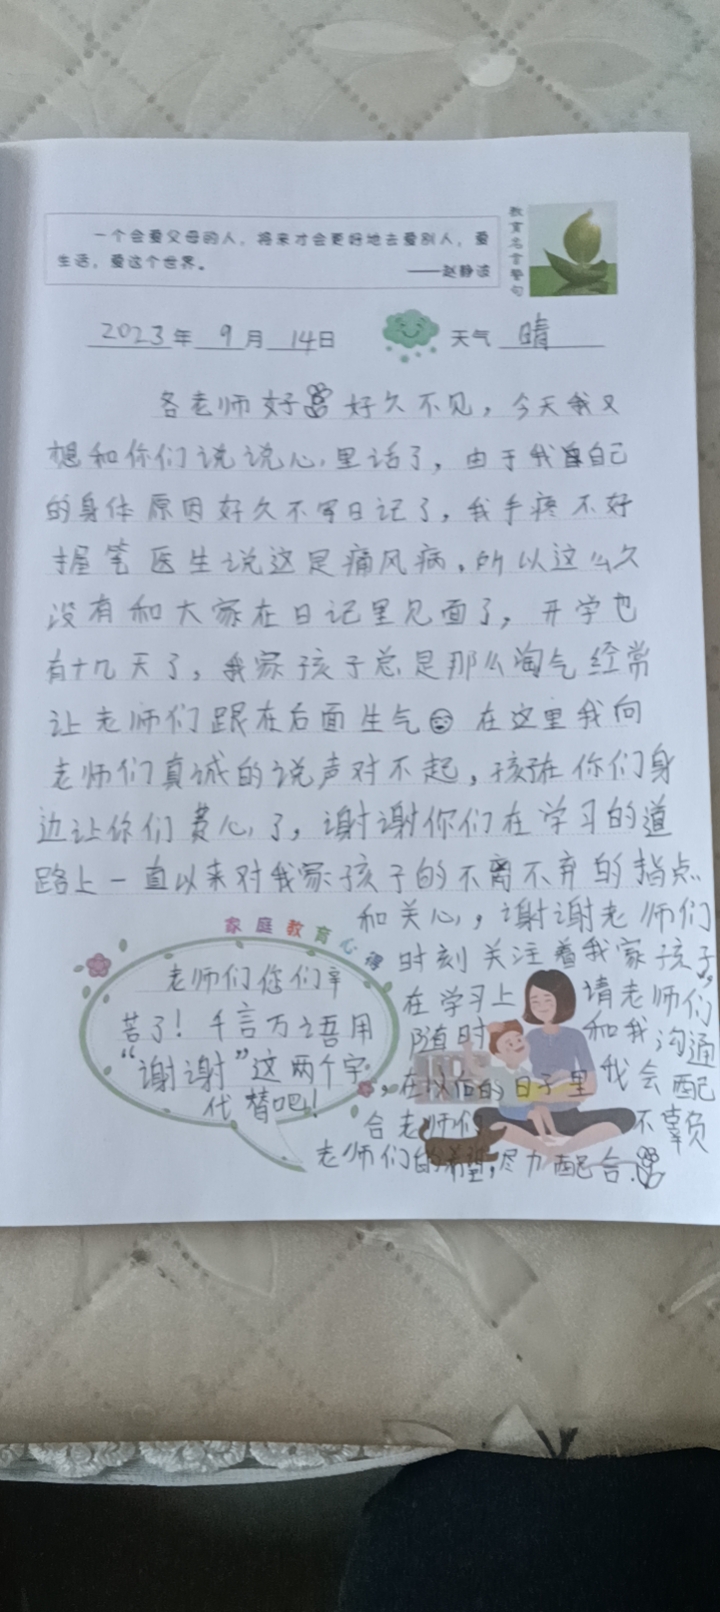 一个会爱父母的人，将来才会更好地去爱别人，爱
生活，爱这个世界。
——赵静波
教育名言警句
2023年 9月 14日 天气 晴
各老师好 好久不见，今天我又
想和你们说说心里话了，由于我自己
的身体原因好久不写日记了，我手疼不好
握笔医生说这是痛风病，所以这么久
没有和大家在日记里见面了，开学也
有十几天了，我家孩子总是那么淘气经常
让老师们跟在后面生气 在这里我向
老师们真诚的说声对不起，孩子在你们身
边让你们费心了，谢谢你们在学习的道
路上一直以来对我家孩子的不离不弃的指点
和关心，谢谢老师们
时刻关注着我家孩子，
在学习上 请老师们
随时 和我沟通
，在以后的日子里我会配
合老师们 不辜负
老师们的希望，尽力配合.
家庭教育心得
老师们您们辛
苦了！千言万语用
“谢谢”这两个字
代替吧！